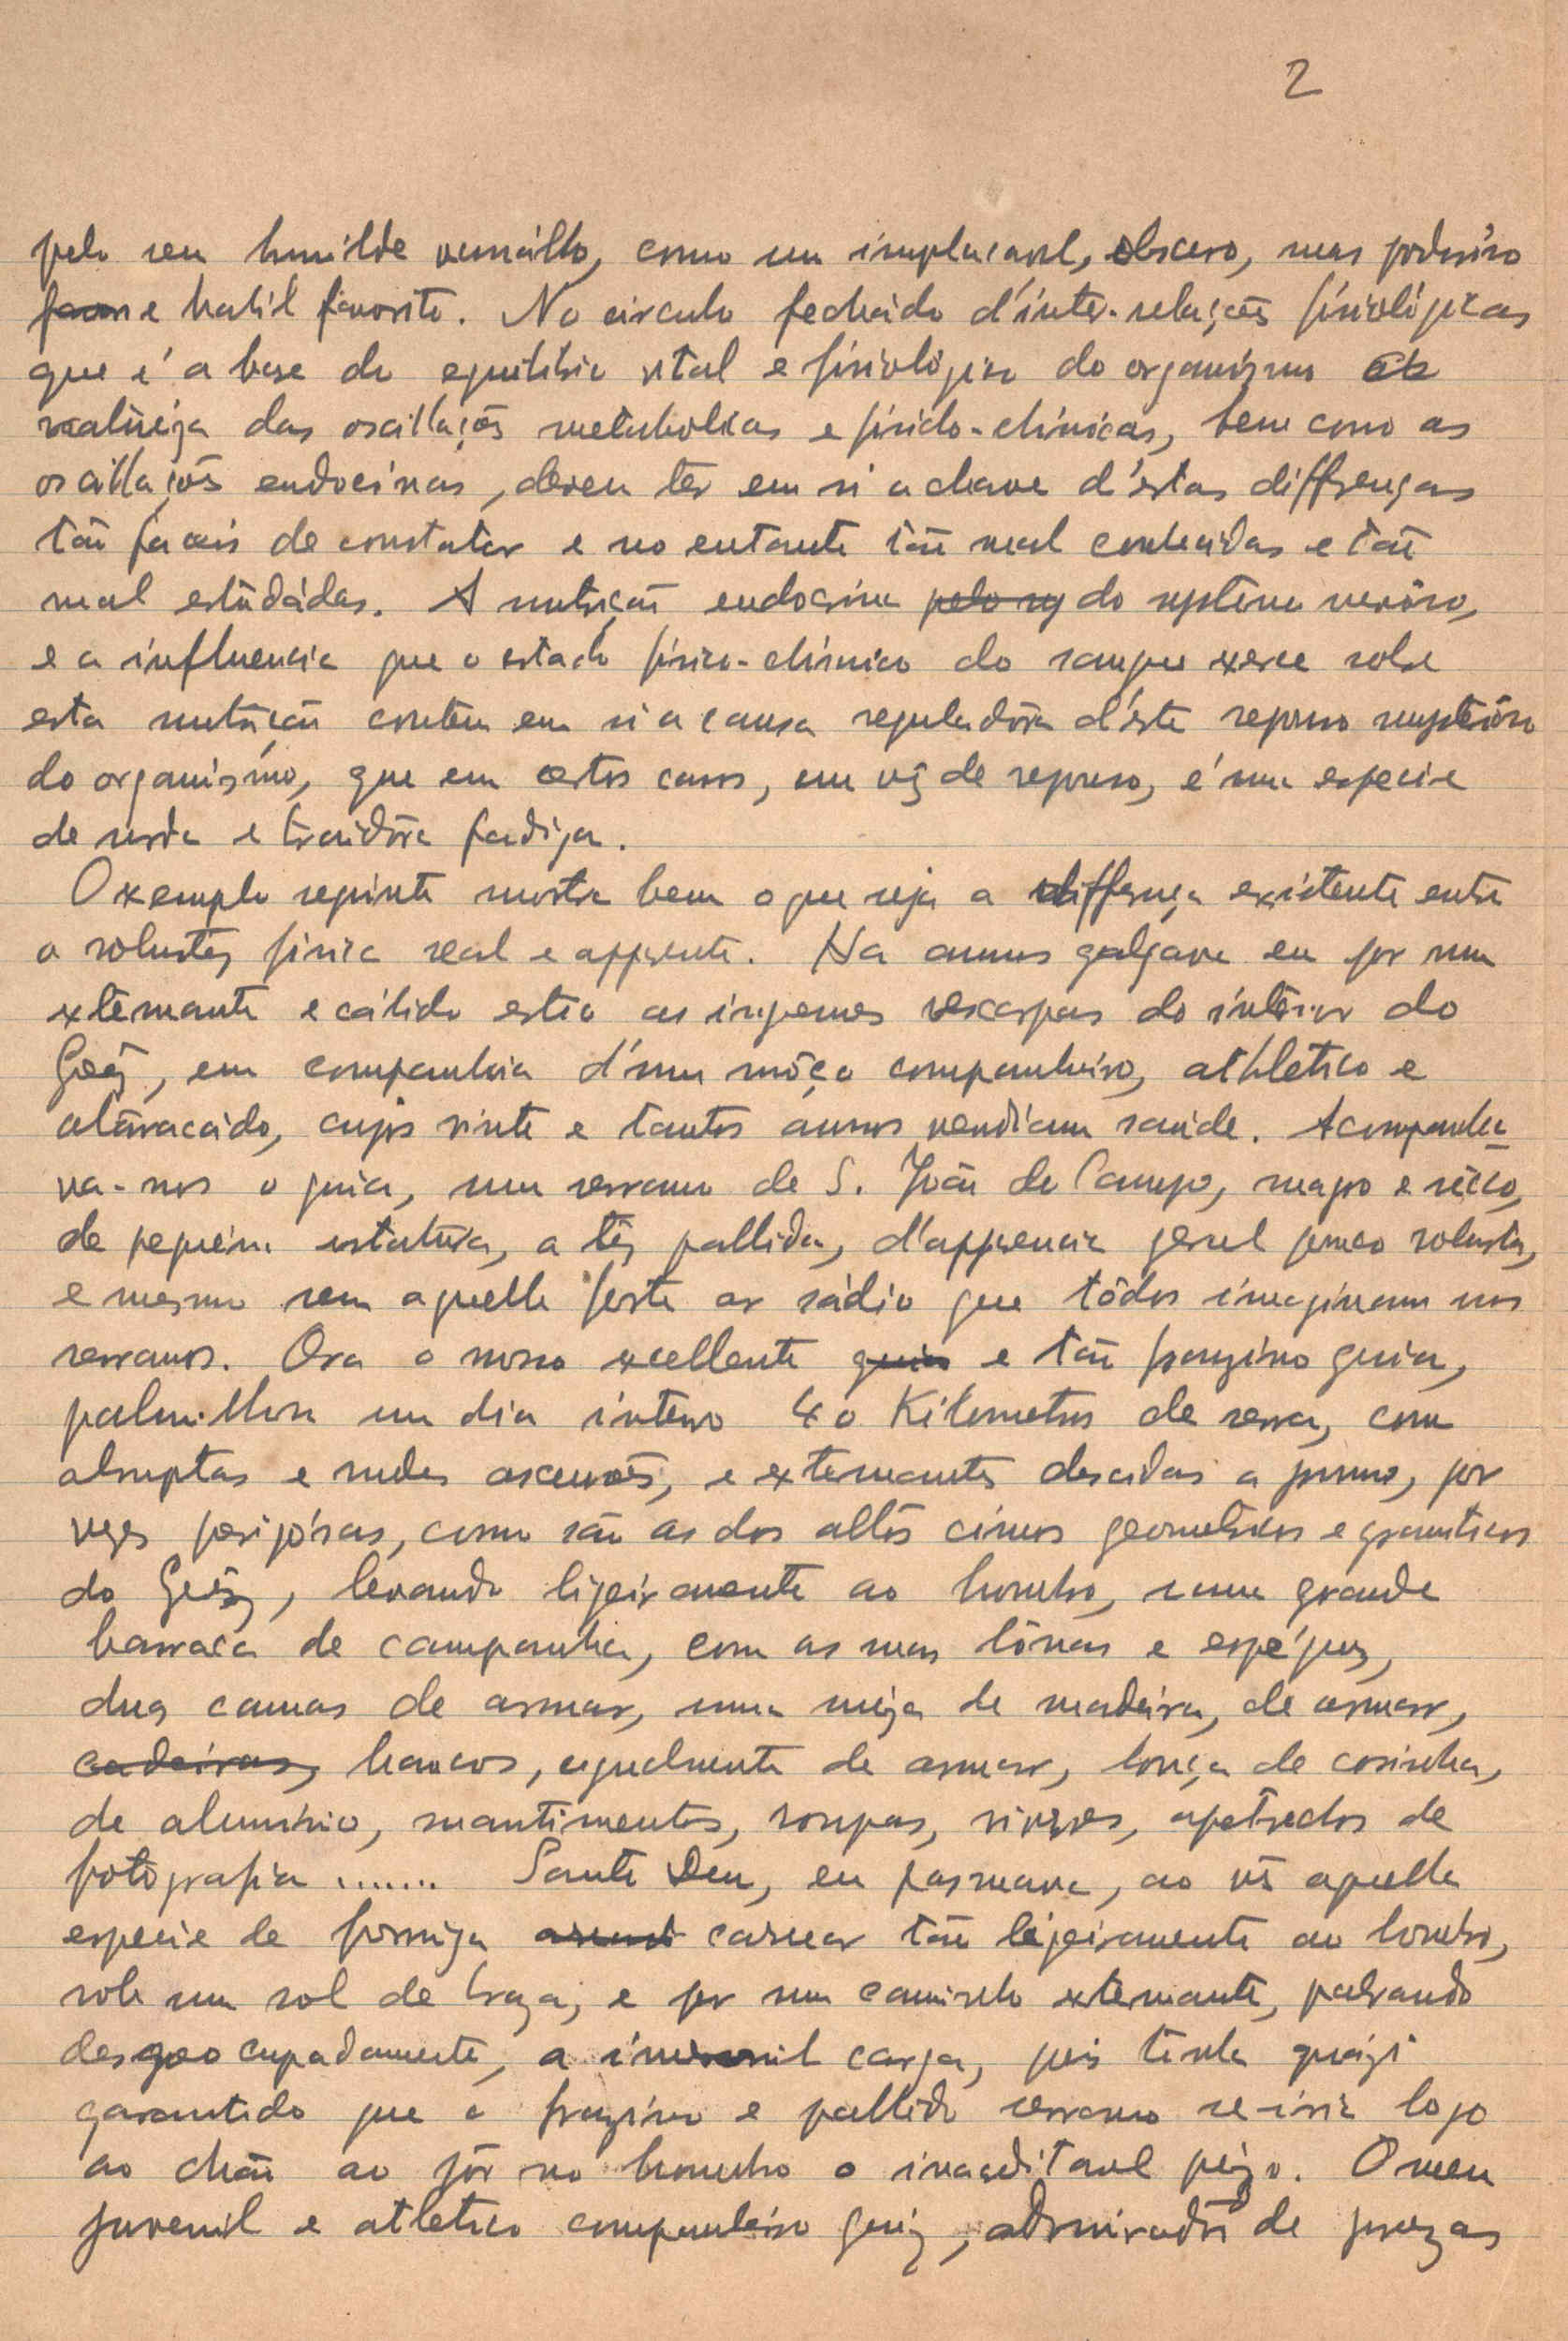 2
pelo seu humilde vassállo, como um implacavel, obscuro, mas poderôso
e habil favorito. No circulo fechádo d'inter-relações fisiológicas
que é a base do equilibrio vital e fisiológico do organismo a
realiêza das oscillações metabolicas e fisico-chimicas, bem como as
oscillações endocrinas, devem ter em si a chave d'éstas differenças
tão faceis de constatar e no entanto tão mal conhecidas e tão
mal estudádas. A nutrição endocrina pelo sy do systema nervôso,
e a influencia que o estado fisico-chimico do sangue exerce sobre
esta nutrição contem em si a causa reguladôra d'éste repouso mysteriôso
do organismo, que em certos casos, em vêz de repouso, é uma especie
de surda e traidôra fadiga.
O exemplo seguinte mostra bem o que seja a differença existente entre
a robustez fisica real e apparente. Ha annos galgava eu por um
extenuante e cálido estio as ingremes escarpas do interior do
Gerêz, em companhia d'um môço companheiro, athletico e
atarracádo, cujos vinte e tantos annos vendiam saúde. Acompanha-
va-nos o guia, um serrano de S. João do Campo, magro e sêcco,
de pequena estatúra, a têz pallida, d'apparencia geral pouco robusta,
e mesmo sem aquelle forte ar sádio que tôdos imaginam nos
serranos. Ora o nosso excellente guia e tão franzino guia,
palmilhou um dia inteiro 40 Kilometros de serra, com
abruptas e rudes ascensões, e extenuantes descidas a prumo, por
vezes perigósas, como são as dos altos cimos geometricos e graniticos
do Gerêz, levando ligeiramente ao hombro, uma grande
barraca de campanha, com as suas lônas e espéques,
duas camas de armar, uma mêza de madeira, de armar,
cadeiras, bancos, egualmente de armar, louça de cosinha,
de alumínio, mantimentos, roupas, viveres, apetrechos de
fotografia ....... Santo Deus, eu pasmava, ao vêr aquella
especie de formiga carregar tão ligeiramente ao hombro,
sob um sol de braza, e por um caminho extenuante, palrando
despreocupadamente, a incrivel carga, pois tinha quázi
garantido que o franzino e pallido serrano se-iria logo
ao chão ao pôr no hombro o inacreditavel pêzo. O meu
juvenil e atletico companheiro quiz, admiradôr de proezas